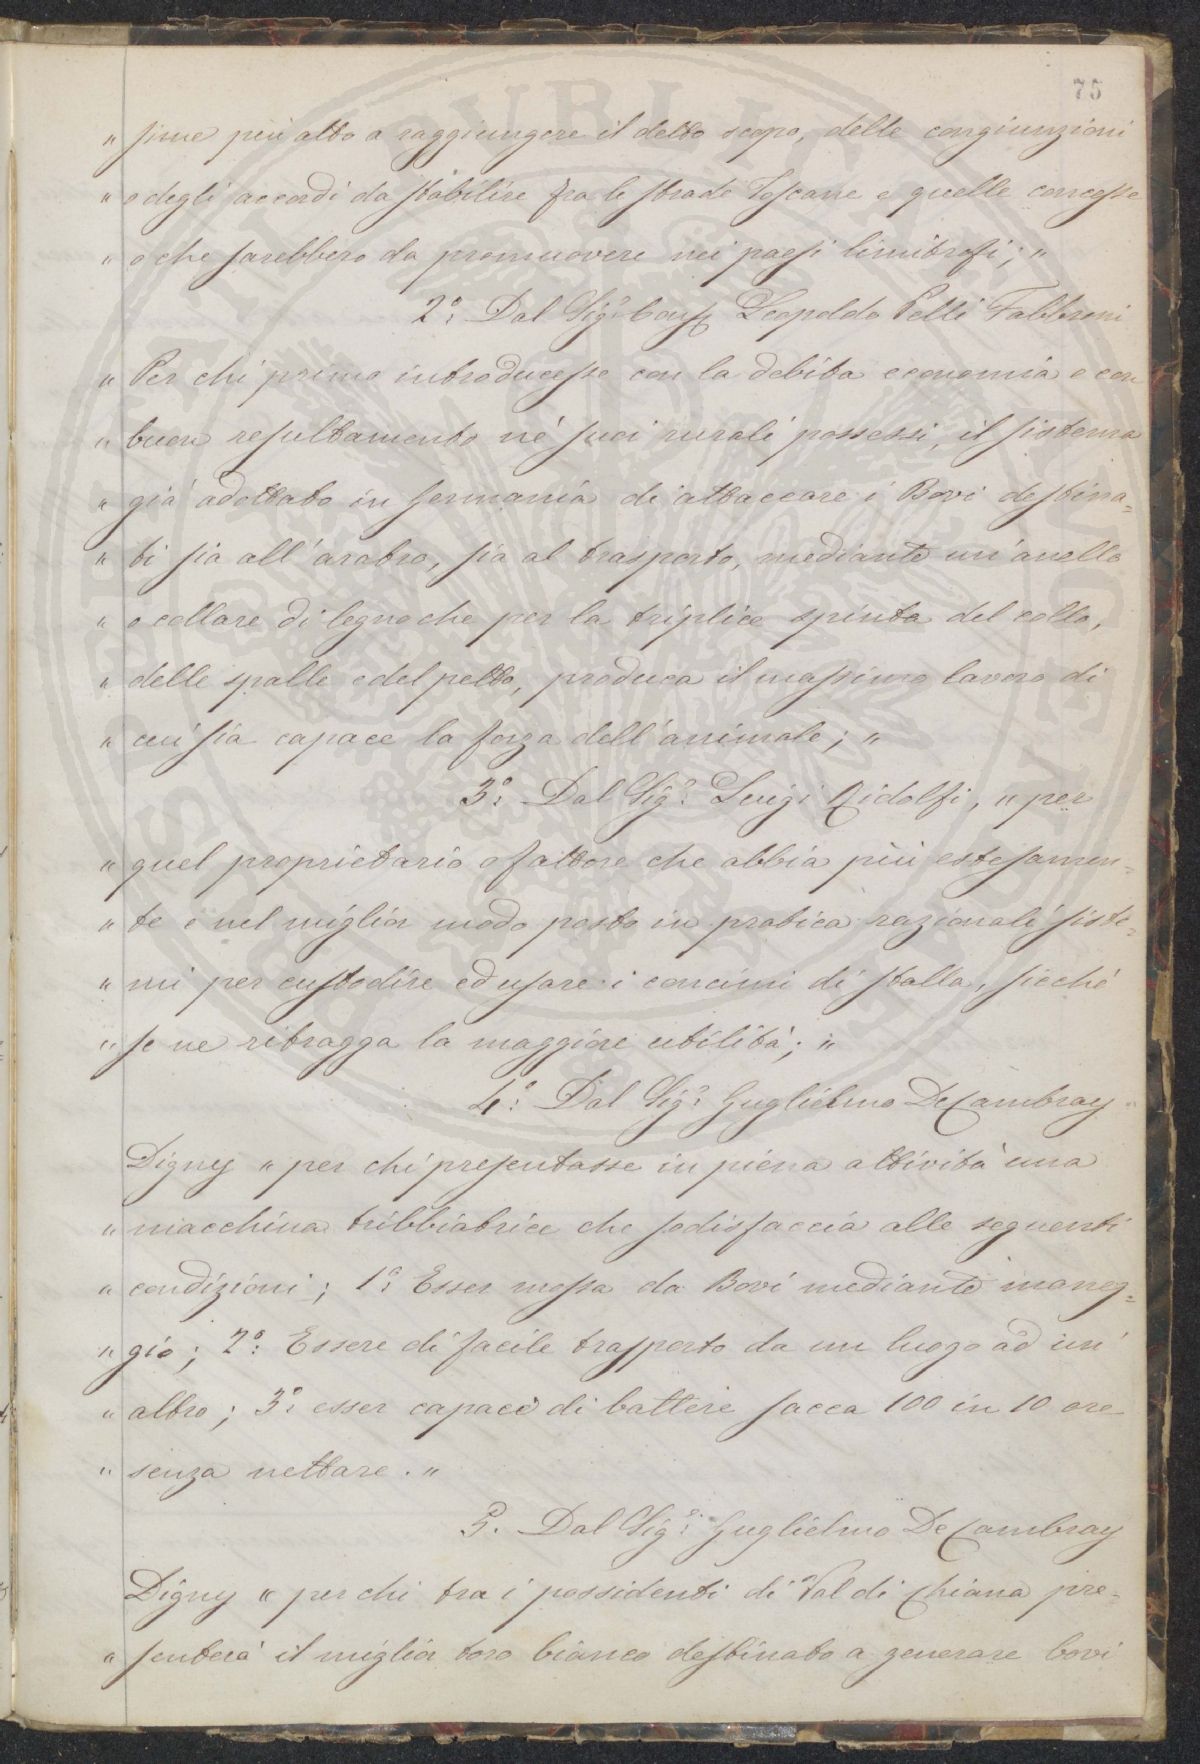 75
" sime più atto a raggiungere il detto scopo, delle congiunzioni
" e degli accordi da stabilire fra le strade Toscane e quelle concesse
" o che sarebbero da promuovere nei paesi limitrofi; "
2º: Dal Sigr. Leopoldo Pelli Fabbroni
" Per chi primo introducesse con la debita economia e con
" buon resultamento nè suoi rurali possessi, il sistema
" già adottato in Germania di attaccare i Bovi destina=
" ti sia all'aratro, sia al trasporto, mediante un'anello
" o collare di legno che per la triplice spinta del collo,
" delle spalle e del petto, produca il massimo lavoro di
" cui sia capace la forza dell'animale; "
3º: Dal Sigr: Luigi Ridolfi, " per
" quel proprietario o fattore che abbia più estesamen=
" te e nel miglior modo posto in pratica razionali siste=
" mi per custodire ed usare i concimi di stalla, sicchè
" se ne ritragga la maggiore utilità; "
4º: Dal Sigr: Guglielmo De Cambray
Digny " per chi presentasse in piena attività una
" macchina tribbiatrice che sodisfaccia alle seguenti
" condizioni; 1º: Esser mossa da Bovi mediante maneg=
" gio; 2º: Essere di facile trasporto da un luogo ad un'
" altro; 3º: esser capace di battere sacca 100 in 10 ore
" senza nettare. "
5. Dal Sigr: Guglielmo De Cambray
Digny " per chi tra i possidenti di Val di Chiana pre=
" senterà il miglior toro bianco destinato a generare bovi
PUBLICA